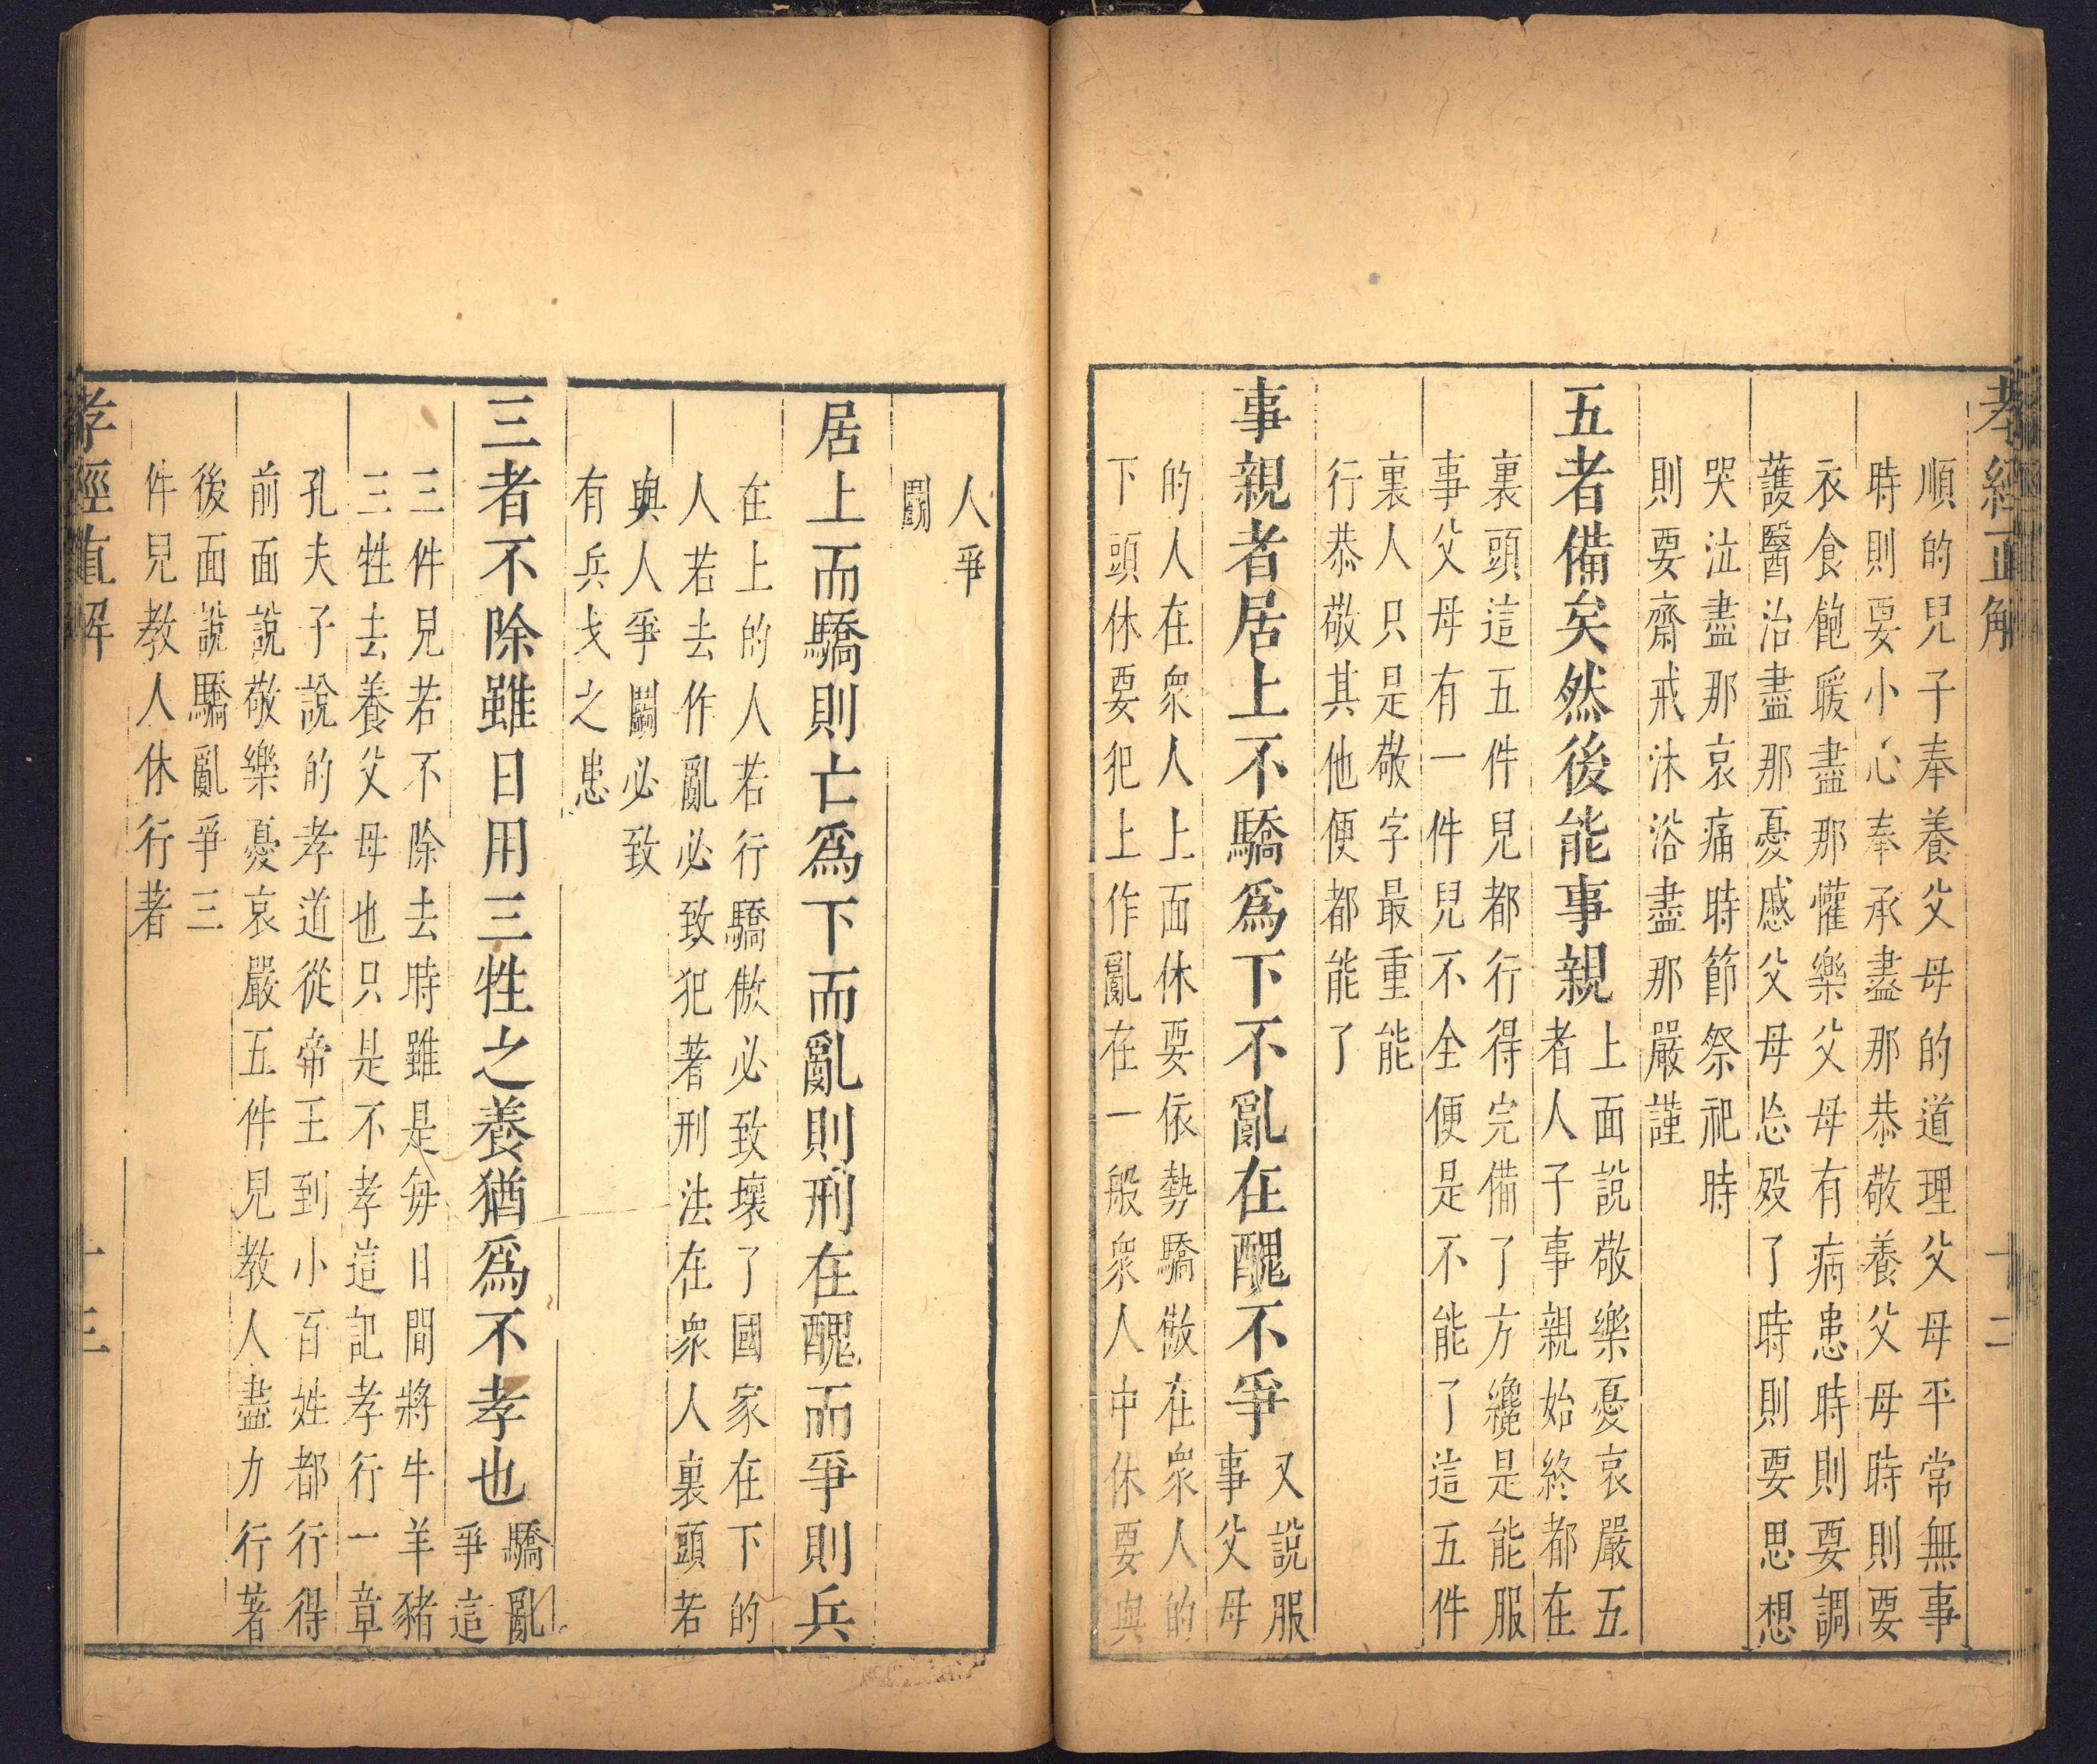 孝經直解 十二
順的兒子奉養父母的道理父母平常無事
時則要小心奉承盡那恭敬養父母時則要
衣食飽暖盡那懽樂父母有病患時則要調
護醫治盡那憂慼父母怹歿了時則要思想
哭泣盡那哀痛時節祭祀時
則要齋戒沐浴盡那嚴謹
五者備矣然後能事親
上面說敬樂憂哀嚴五
者人子事親始終都在
裏頭這五件兒都行得完備了方纔是能服
事父母有一件兒不全便是不能了這五件
裏人只是敬字最重能
行恭敬其他便都能了
事親者居上不驕爲下不亂在醜不爭
又說服
事父母
的人在衆人上面休要依勢驕傲在衆人的
下頭休要犯上作亂在一般衆人中休要與
人爭
鬭
居上而驕則亡爲下而亂則刑在醜而爭則兵
在上的人若行驕傲必致壞了國家在下的
人若去作亂必致犯著刑法在衆人裏頭若
與人爭鬭必致
有兵戈之患
三者不除雖日用三牲之養猶爲不孝也
驕亂
爭這
三件兒若不除去時雖是每日間將牛羊豬
三牲去養父母也只是不孝這記孝行一章
孔夫子說的孝道從帝王到小百姓都行得
前面說敬樂憂哀嚴五件兒教人盡力行著
後面說驕亂爭三
件兒教人休行著
孝經直解 十三